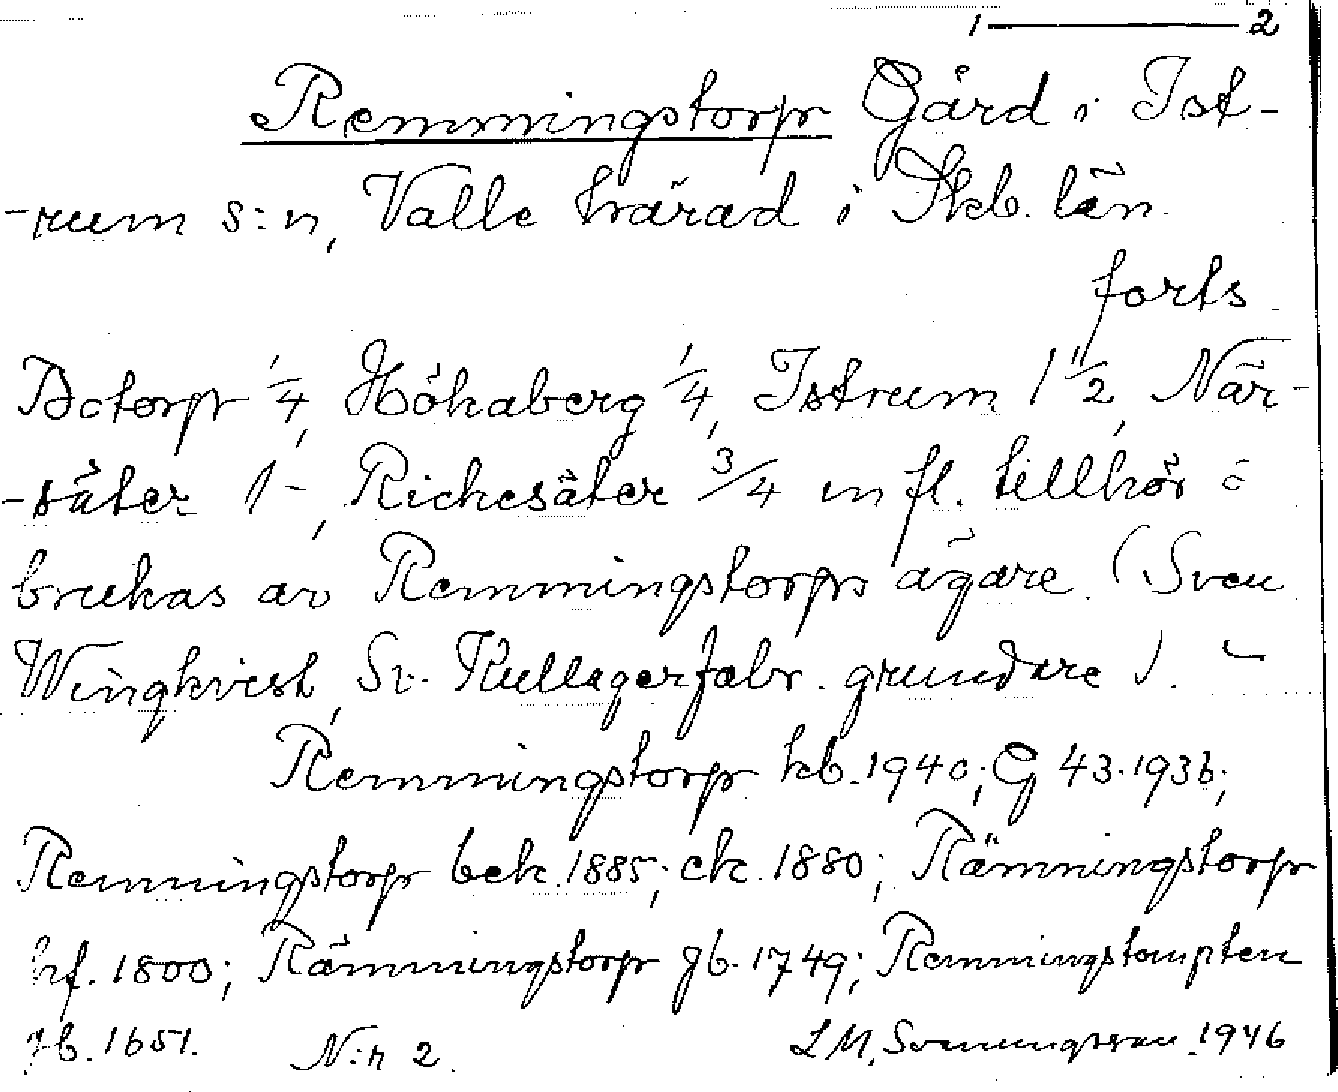 1 ——— 2
Remmingstorp Gård i Ist-
-rum s:n, Valle härad i Skb. län.
forts
Botorp 1/4, Hökaberg 1/4, Istrum 1 1/2, När-
-säter 1-, Rickesäter 3/4 m fl. tillhör o
brukas av Remmingstorps ägare. (Sven
Wingkvist, Sv. Kullagerfabr. grundare). –
Remmingstorp hb. 1940; G 43. 1936;
Remmingstorp bek. 1885; ek. 1880; Rämningstorp
hf. 1800; Rämningstorp jb. 1749; Remmingstompten
jb. 1651. N:r 2 L M. Svenungsson 1946